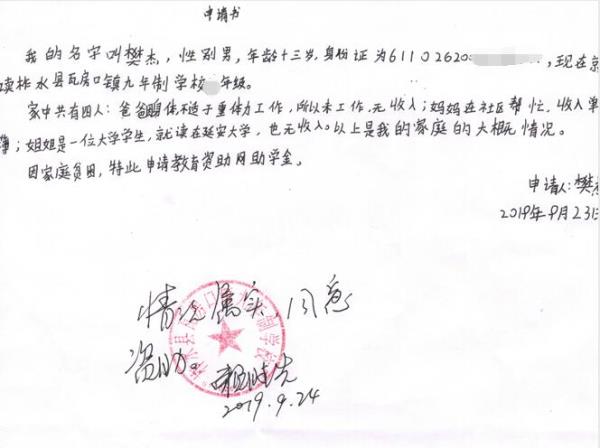 申请书
我的名字叫樊杰，性别男，年龄十三岁，身份证为61102620，现在就
读柞水县瓦房口镇九年制学校年级。
家中共有四人：爸爸体不适于重体力工作，所以未工作，无收入；妈妈在社区帮忙，收入单
薄；姐姐是一位大学学生，就读在延安大学，也无收入。以上是我的家庭的大概情况。
因家庭贫困，特此申请教育资助网助学金。
申请人：樊杰
2019年9月23日
情况属实，同意
资助。
2019.9.24